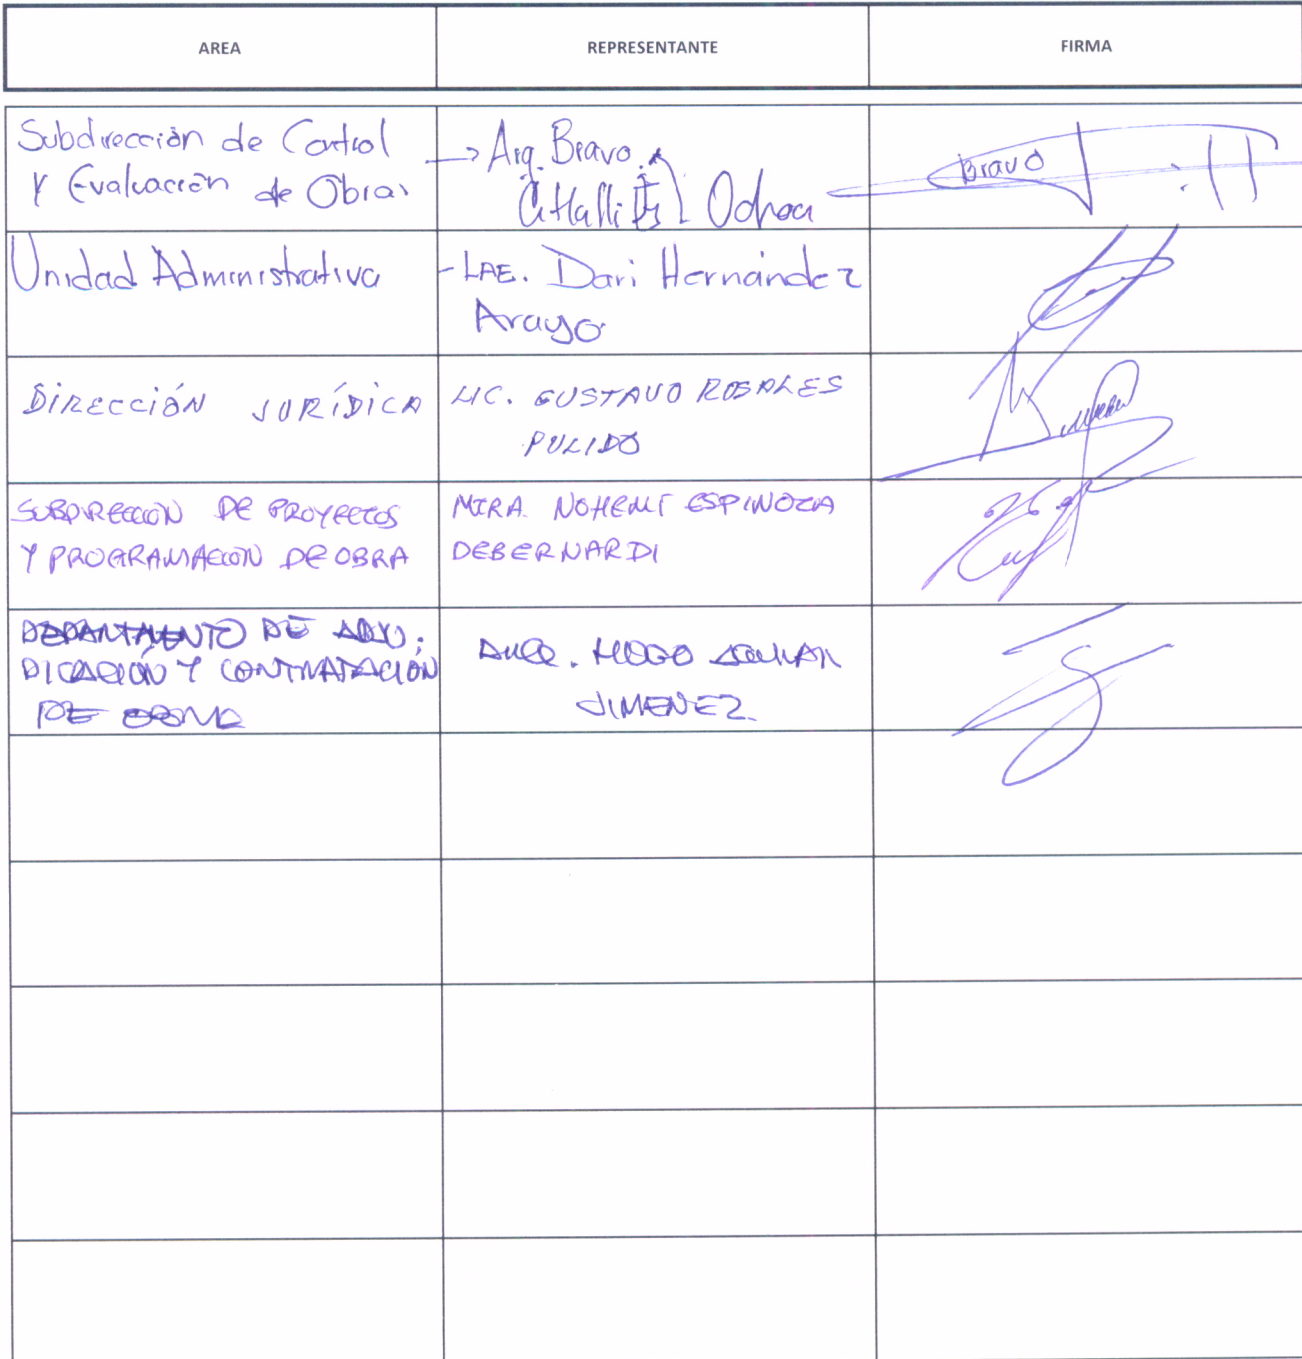 AREA REPRESENTANTE FIRMA
Subdirección de Control
Y Evaluación de Obras
→ Arq. Bravo
Citlalli Ochoa
Bravo
Unidad Administrativa
- LAE. Dari Hernández
Arayo
DIRECCIÓN JURÍDICA
LIC. GUSTAVO ROSALES
PULIDO
SUBDIRECCION DE PROYECTOS
Y PROGRAMACION DE OBRA
MIRA. NOHEMI ESPINOZA
DEBERNARDI
DEPARTAMENTO DE ADJU-
DICACIÓN Y CONTRATACIÓN
DE OBRA
HUGO
JIMENEZ.